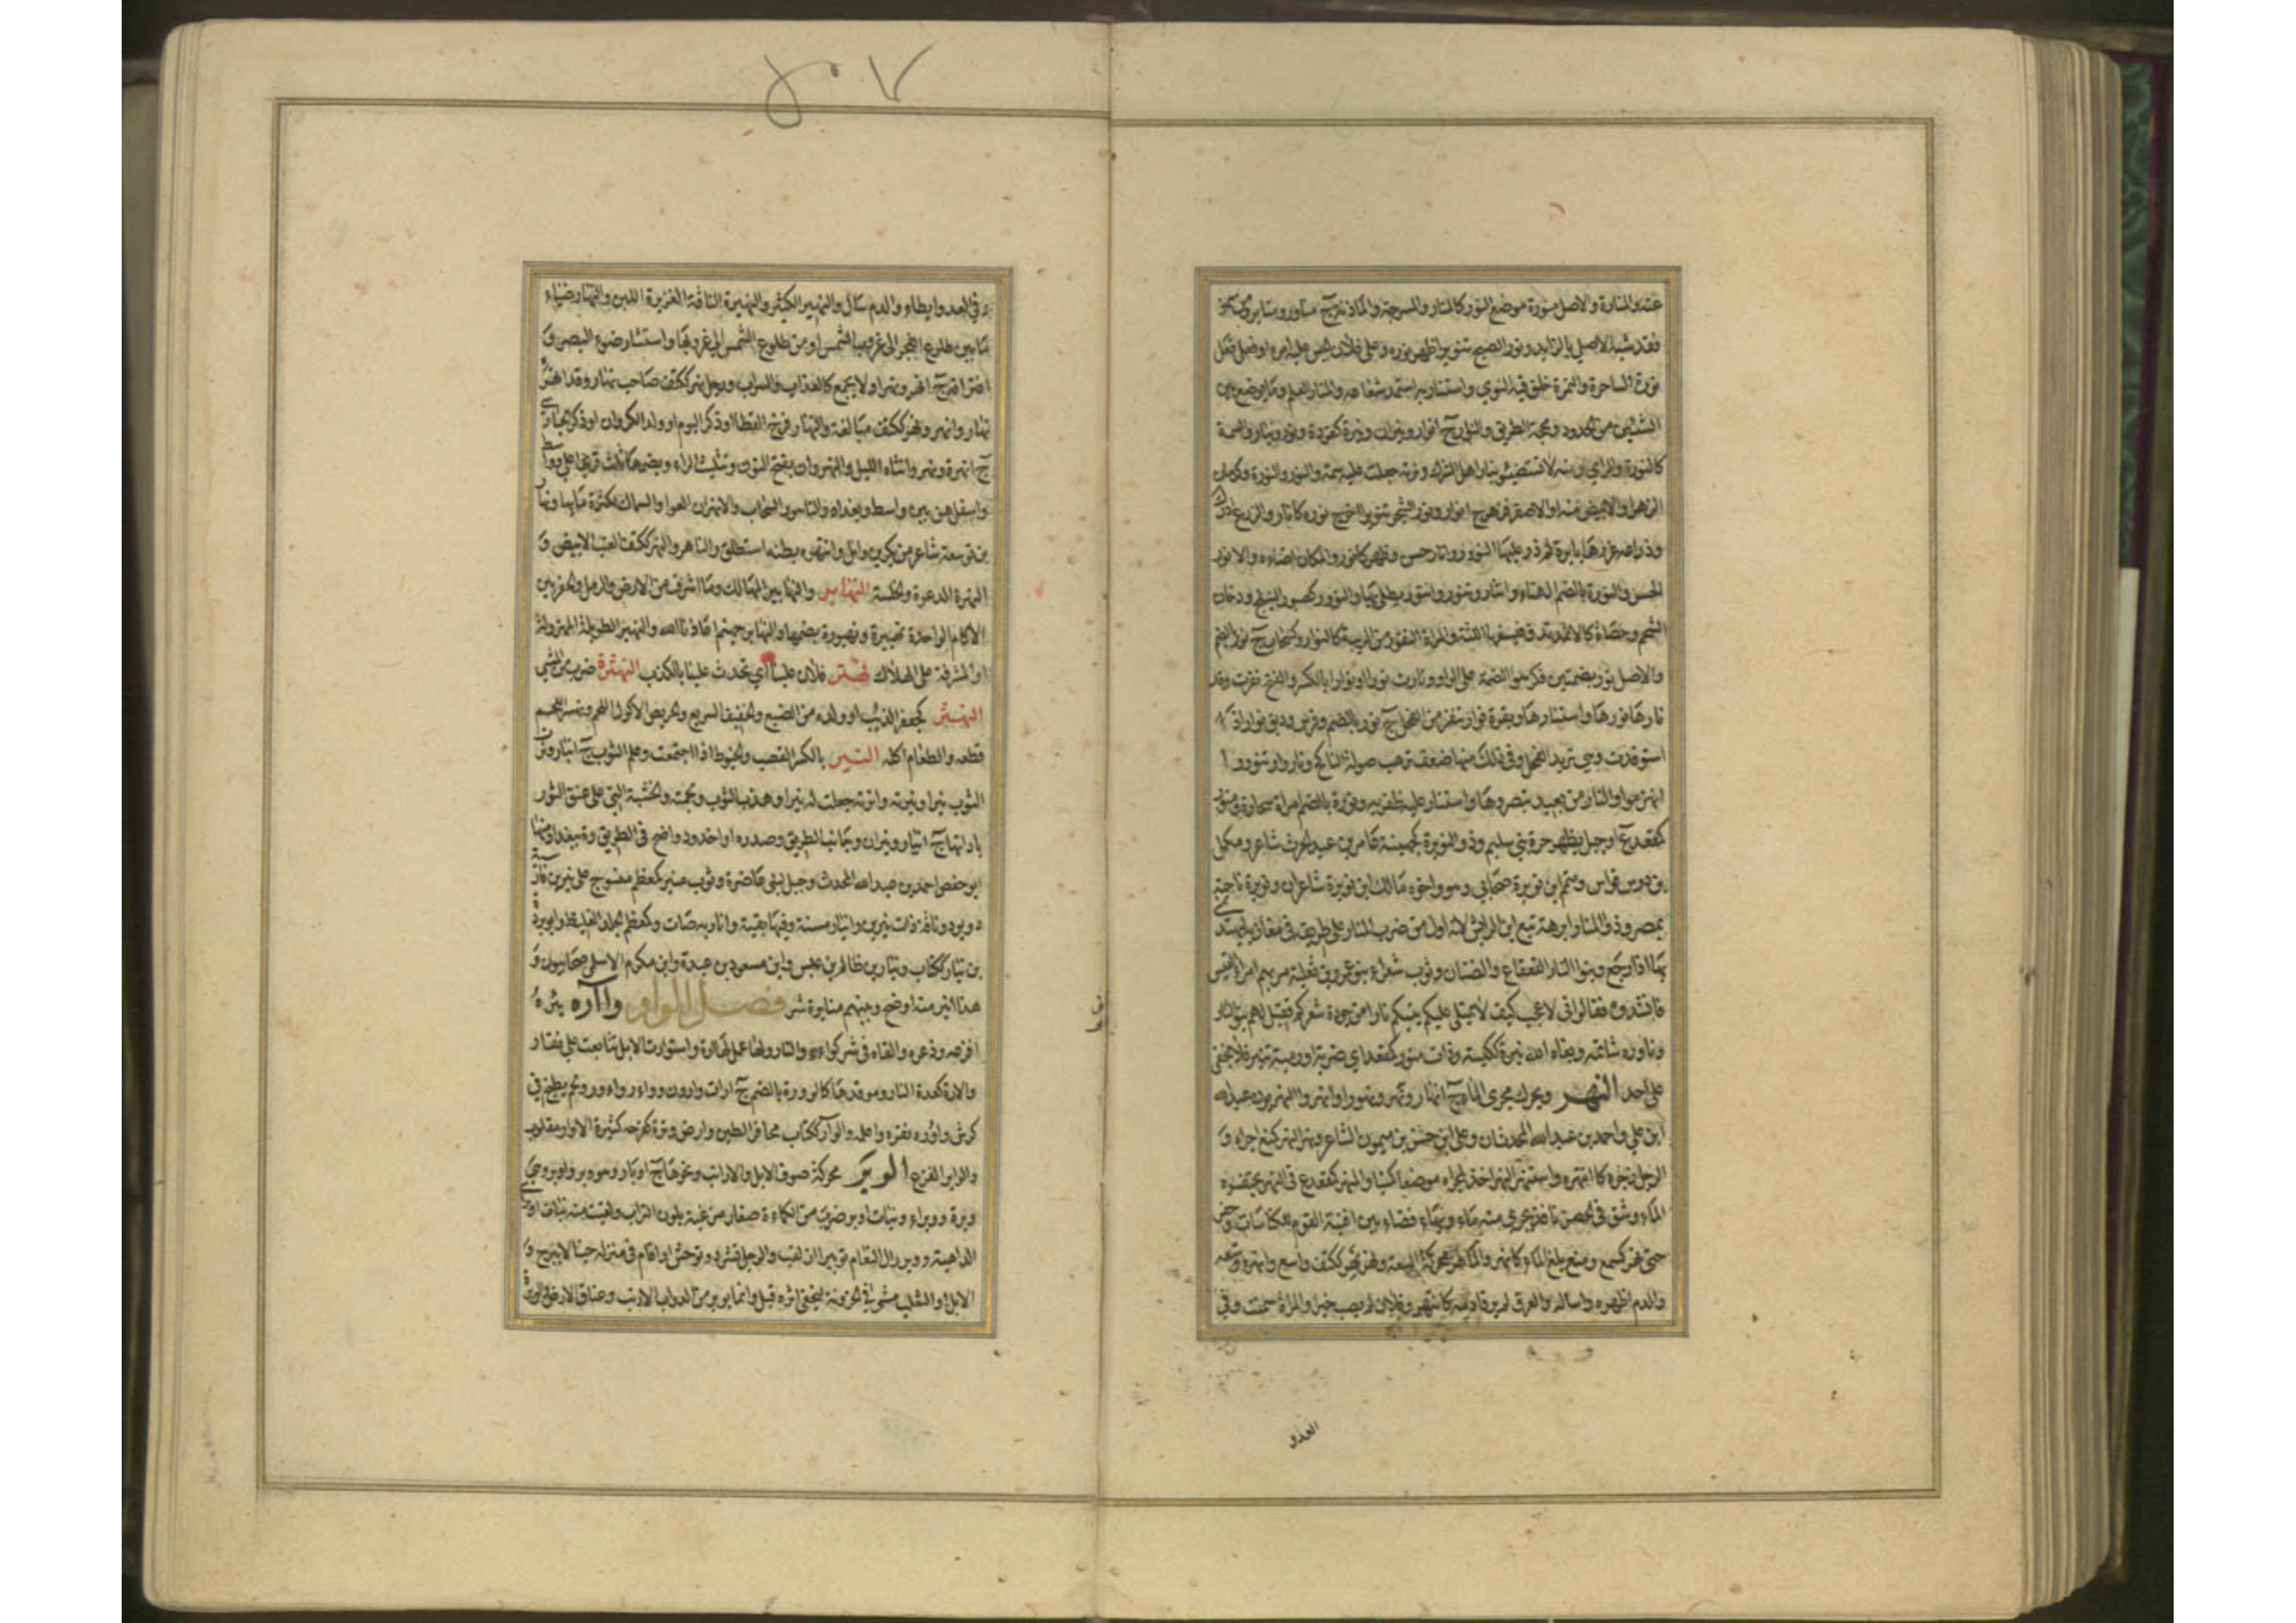 عنه والمنارة والاصل منورة موضع النور كالمنار والمسرجة والمأذنة ج مناور ومنائر ومن همز
فقد شبه الاصلي بالزائد ونور الصبح تنويرا ظهر نوره وعلى فلان لبس عليه امره او فعل فعل
نورة الساحرة والتمرة خلق فيه النوى واستنار به استمد شعاعه والمنار العلم وما يوضع بين
الشيئين من الحدود ومحجة الطريق والنار ج انوار ونيران ونيرة كقردة ونور ونيار والسمة
كالنورة والراي ومنه لا تستضيئوا بنار اهل الشرك ونرته جعلت عليه سمة والنور والنورة وكرمان
الزهر او الابيض منه والاصفر فزهر ج انوار ونور الشجر تنويرا اخرج نوره كانار والزرع ادرك
وذراعه غرزها بابرة ثم ذر عليها النؤور وانار حسن وظهر كانور والمكان اضاءه والانور
الحسن والنورة بالضم الهناء وانتار وتنور وانتور تطلى بها والنؤور كصبور النيلج ودخان
الشحم وحصاة كالاثمد تدق فتسفها اللثة والمراة النفور من الريبة كالنوار كسحاب ج نور بالضم
والاصل نور بضمتين فكرهوا الضمة على الواو ونارت نورا ونوارا بالكسر والفتح نفرت وقد
نارها ونورها واستنارها وبقرة نوار تنفر من الفحل ج نور بالضم وفرس وديق نوار اذا
استودقت وهي تريد الفحل وفي ذلك منها ضعف ترهب صولة الناكح وناروا وتنوروا
انهزموا والنار من بعيد تبصروها واستنار عليه ظفر به ونورة بالضم امراة سحارة ومنور
كمقعد ع او جبل بظهر حرة بني سليم وذو النويرة كجهينة عامر بن عبد الحرث شاعر ومكمل
بن دوس قواس ومتمم ابن نويرة صحابي وهو واخوه مالك ابن نويرة شاعران ونويرة ناحية
بمصر وذو المنار ابرهة تبع ابن الرايش لانه اول من ضرب المنار على طريقه في مغازيه ليهتدي
بها اذا رجع وبنوا النار القعقاع والضنان وثوب شعراء بنو عمرو بن ثعلبة مر بهم امرؤ القيس
فانشدوه فقال اني لاعجب كيف لا تمتلئ عليكم بيتكم نارا من جودة شعركم فقيل لهم بنو النار
وناوره شاتمه وبغاه الله نيرة ككيسة وذات منور كمقعد اي ضربة او رمية تنير فلا تخفى
على احد النهر ويحرك مجرى الماء ج انهار ونهر ونهور وانهر والنهريون عبد الله
ابن علي واحمد بن عبيد الله المحدثان وعلي ابن حسن بن ميمون الشاعر ونهر النهر كمنع اجراه و
الرجل زجره كانتهره واستنهر النهر اخذ لمجراه موضعا مكينا والمنهر كمقعد ع في النهر يحتفره
الماء وشق في الحصن نافذ يجري منه ماء وبهاء فضاء بين افنية القوم للكناسات وحفر
حتى نهر كسمع ومنع بلغ الماء كانهر والماء نهر محركة السعة ونهر نهر ككتف واسع وانهره وسعه
والدم اظهره واساله والعرق لم يرقا دمه كانتهر وفلان لم يصب خيرا والمراة سمنت وفي
العدو
في العدو ابطاء والدم سال والنهير الكثير والنهيرة الناقة الغزيرة اللبن والنهار ضياء
ما بين طلوع الفجر الى غروب الشمس او من طلوع الشمس الى غروبها او انتشار ضوء البصر و
افتراقه ج انهر ونهر او لا يجمع كالعذاب والسراب ورجل نهر ككتف صاحب نهار وقد انهر
نهار وانهر ونهر ككتف مبالغة والنهار فرخ القطا او ذكر البوم او ولد الكروان او ذكر الحبارى
ج انهرة ونهر وانثاه الليل والنهروان بفتح النون وتثليث الراء وبضمها ثلاث قرى اعلى واوسط
واسفل هن بين واسط وبغداد والناهور السحاب والانهران العوا والسماك لكثرة مائهما ونهار
بن توسعة شاعر من بكر بن وايل وانتهر بطنه استطلق والناهر والنهر ككتف العنب الابيض و
النهرة الدعرة والخلسة النهابير والنهابر المهالك وما اشرف من الارض والرمل والحفر بين
الآكام الواحدة نهبيرة ونهبورة بضمهما والنهابر جهنم اعاذنا الله والنهبرة الطويلة المهزولة
او المشرفة على الهلاك نهتر فلان علينا اي تحدث علينا بالكذب النهترة ضرب من المشي
النهسر كجعفر الذيب او ولده من الضبع والخفيف السريع والحريص الاكول اللحم ونهسر اللحم
قطعه والطعام اكله النير بالكسر القصب والخيوط اذا اجتمعت وعلم الثوب ج انيار ونرت
الثوب نيرا ونيرته وانرته جعلت له نيرا وهدب الثوب ولحمته والخشبة التي على عنق الثور
باداتها ج انيار ونيران وجانب الطريق وصدره او اخدود واضح في الطريق وة ببغداد منها
ابو حفص احمد بن عبد الله المحدث وجبل لبني غاضرة وثوب منير كمعظم منسوج على نيرين فارسيته
دوبود وناقة ذات نيرين وانيار مسنة وفيها بقية وانار به صات وكمعظم الجلد الغليظ وابو بردة
بن نيار ككتاب ونيار بن ظالم بن عبس وابن مسعود بن عبدة وابن مكرم الاسلمي صحابيون و
هذا انير منه اوضح وبينهم منايرة شر فصل الواو واآره يئره
افزعه وذعره والقاه في شر كواءره والنار ولها عمل لها ارة واستوارت الابل تتابعت على نفار
والارة كعدة النار وموقدها كالوؤرة بالضم ج ارات وارون وواءر واءور ولحم يطبخ في
كرش واوره نفره واعلمه والوآر ككتاب محافر الطين وارض وئرة كفرحة كثيرة الاوار مقلوب
والوائر الفزع الوبر محركة صوف الابل والارانب ونحوها ج اوبار وهو وبر واوبر وهي
وبرة ووبراء وبنات اوبر ضرب من الكماءة صغار مزغبة بلون التراب ولقيت منه بنات اوبر
الداهية ووبر رال النعام توبيرا ازلغب والرجل تشرد وتوحش او اقام في منزله حينا لا يبرح و
الابل او الثعلب مشى في الحزونة ليخفى اثره قيل وانما يوبر من الدواب الارنب وعناق الارض والوبرة